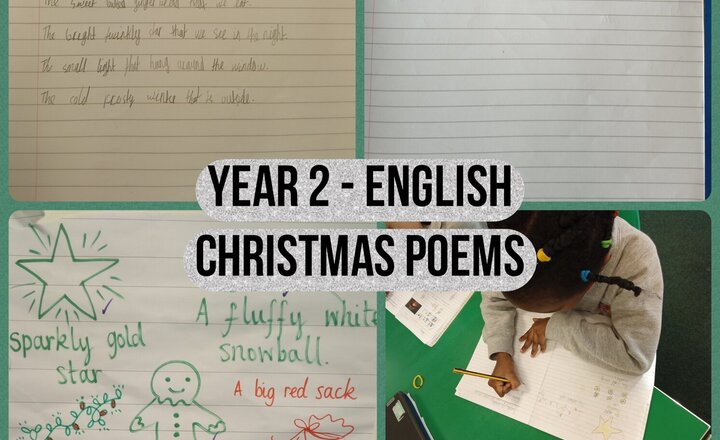 The sweet baked gingerbread that we eat.
The bright twinkly star that we see in the night.
The small light that hang around the window.
The cold frosty winter that is outside.
YEAR 2 - ENGLISH
CHRISTMAS POEMS
sparkly gold
star
A fluffy white
snowball.
A big red sack